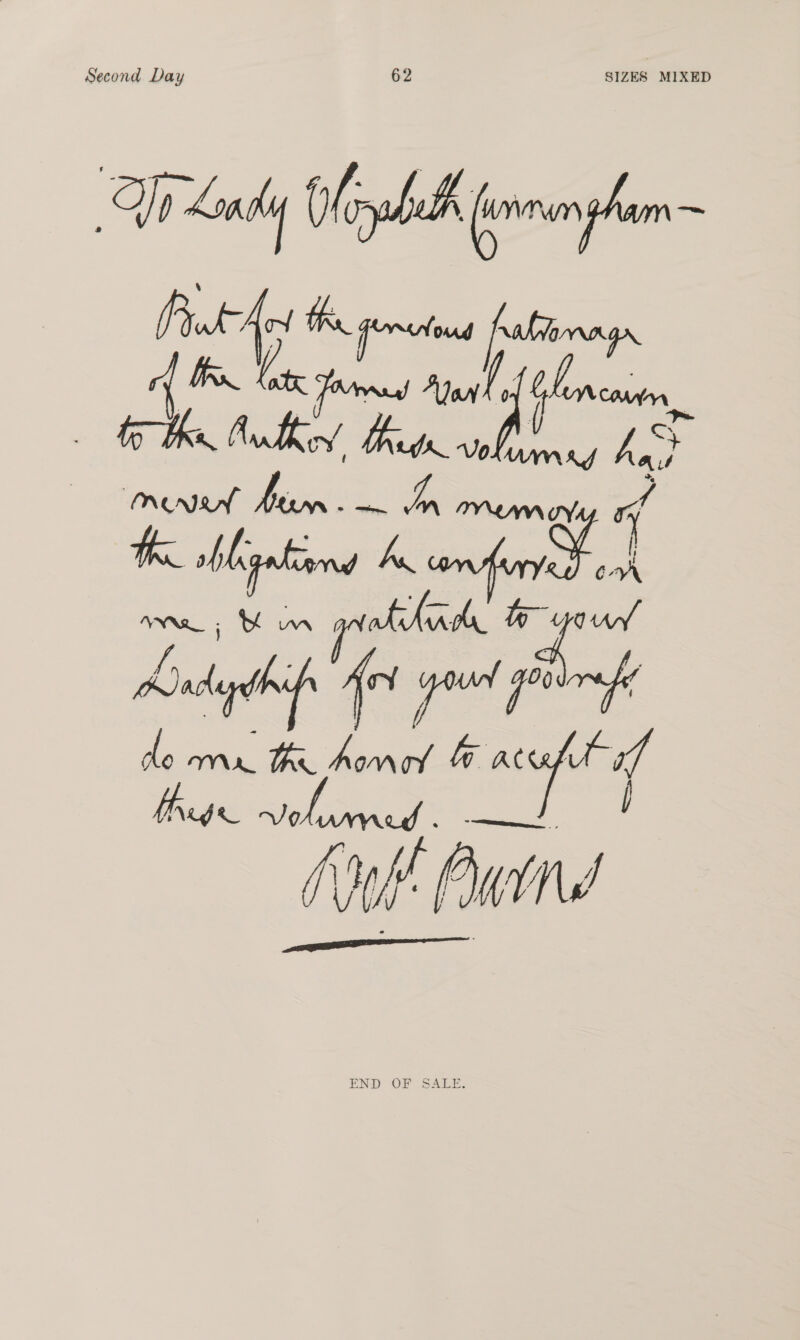 Second Day 62 SIZES MIXED
To Lady Elizabeth Cunningham —
But for the generous patronage
of the late James Earl of Glencairn
to the Author, these volumes had
never been. — In memory of
the obligations he conferred on
me; & in gratitude to your
Ladyship for your goodness,
do me the honor to accept of
these volumes. —
Robt. Burns
END OF SALE.